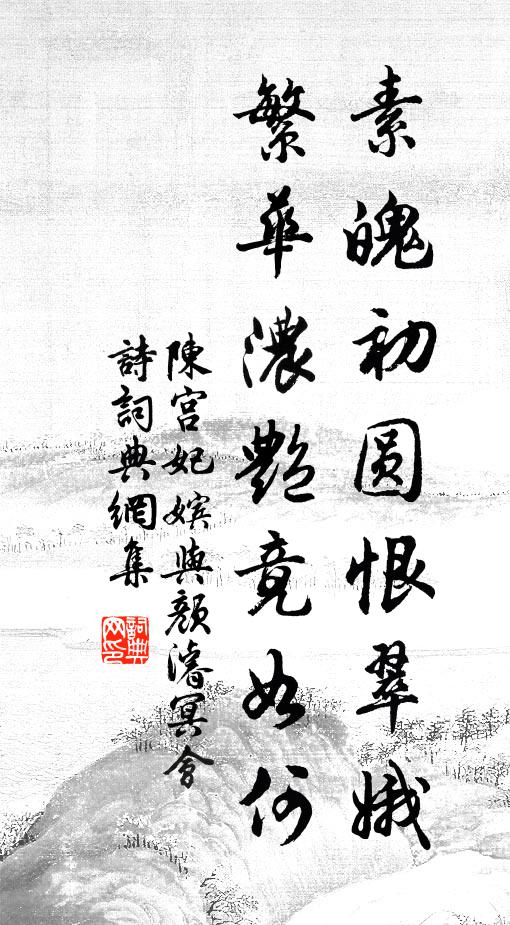 素魄初圆恨翠娥
繁華濃艷竟如何
陳宫妃嬪與顔濬冥會
詩詞典網集
詞典网印